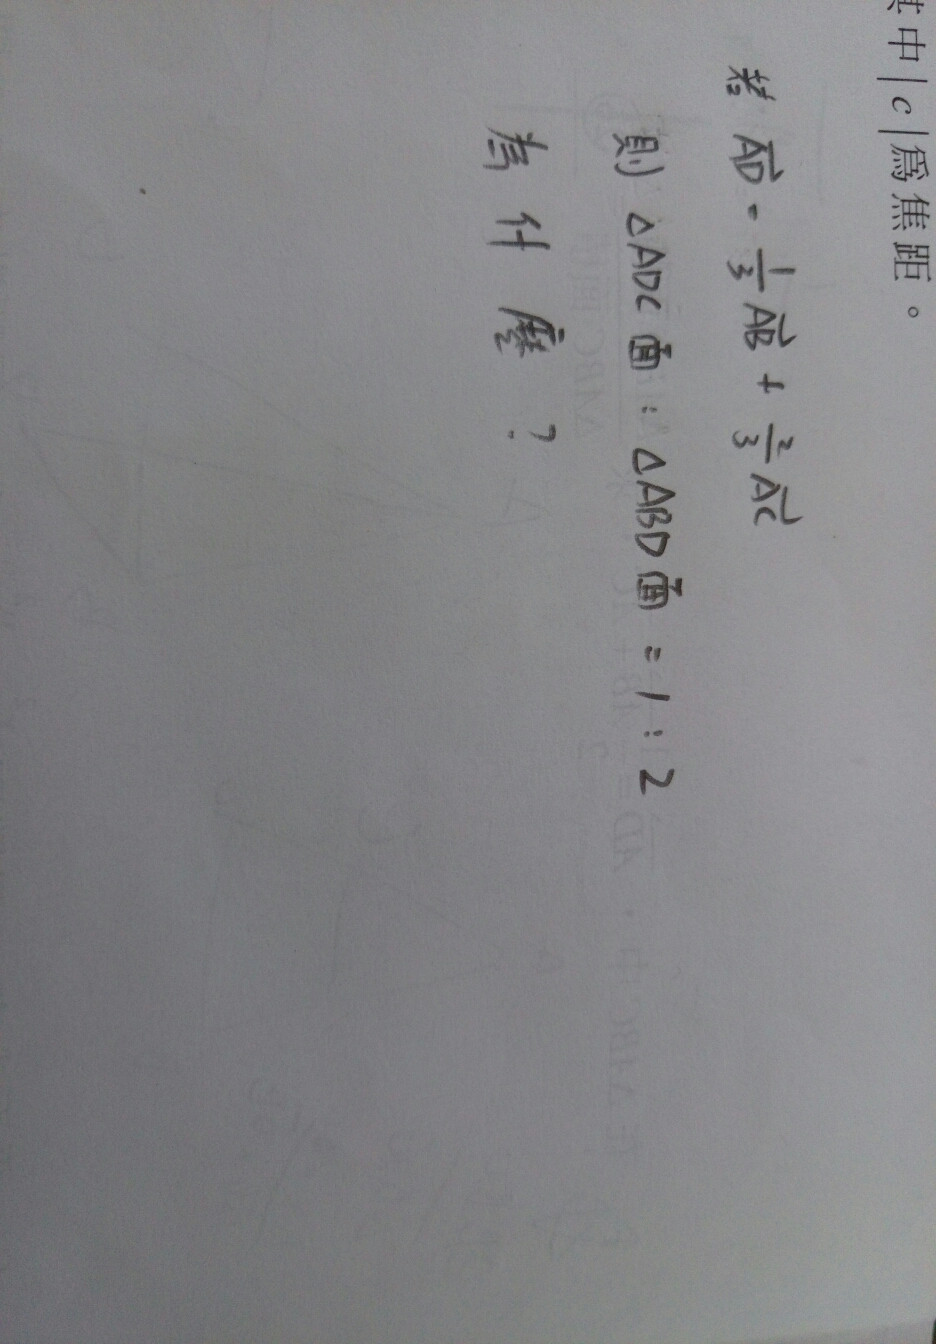 其中|c|爲焦距。
若 AD = 1/3 AB + 2/3 AC
則 △ADC面 : △ABD面 = 1 : 2
為什麼?